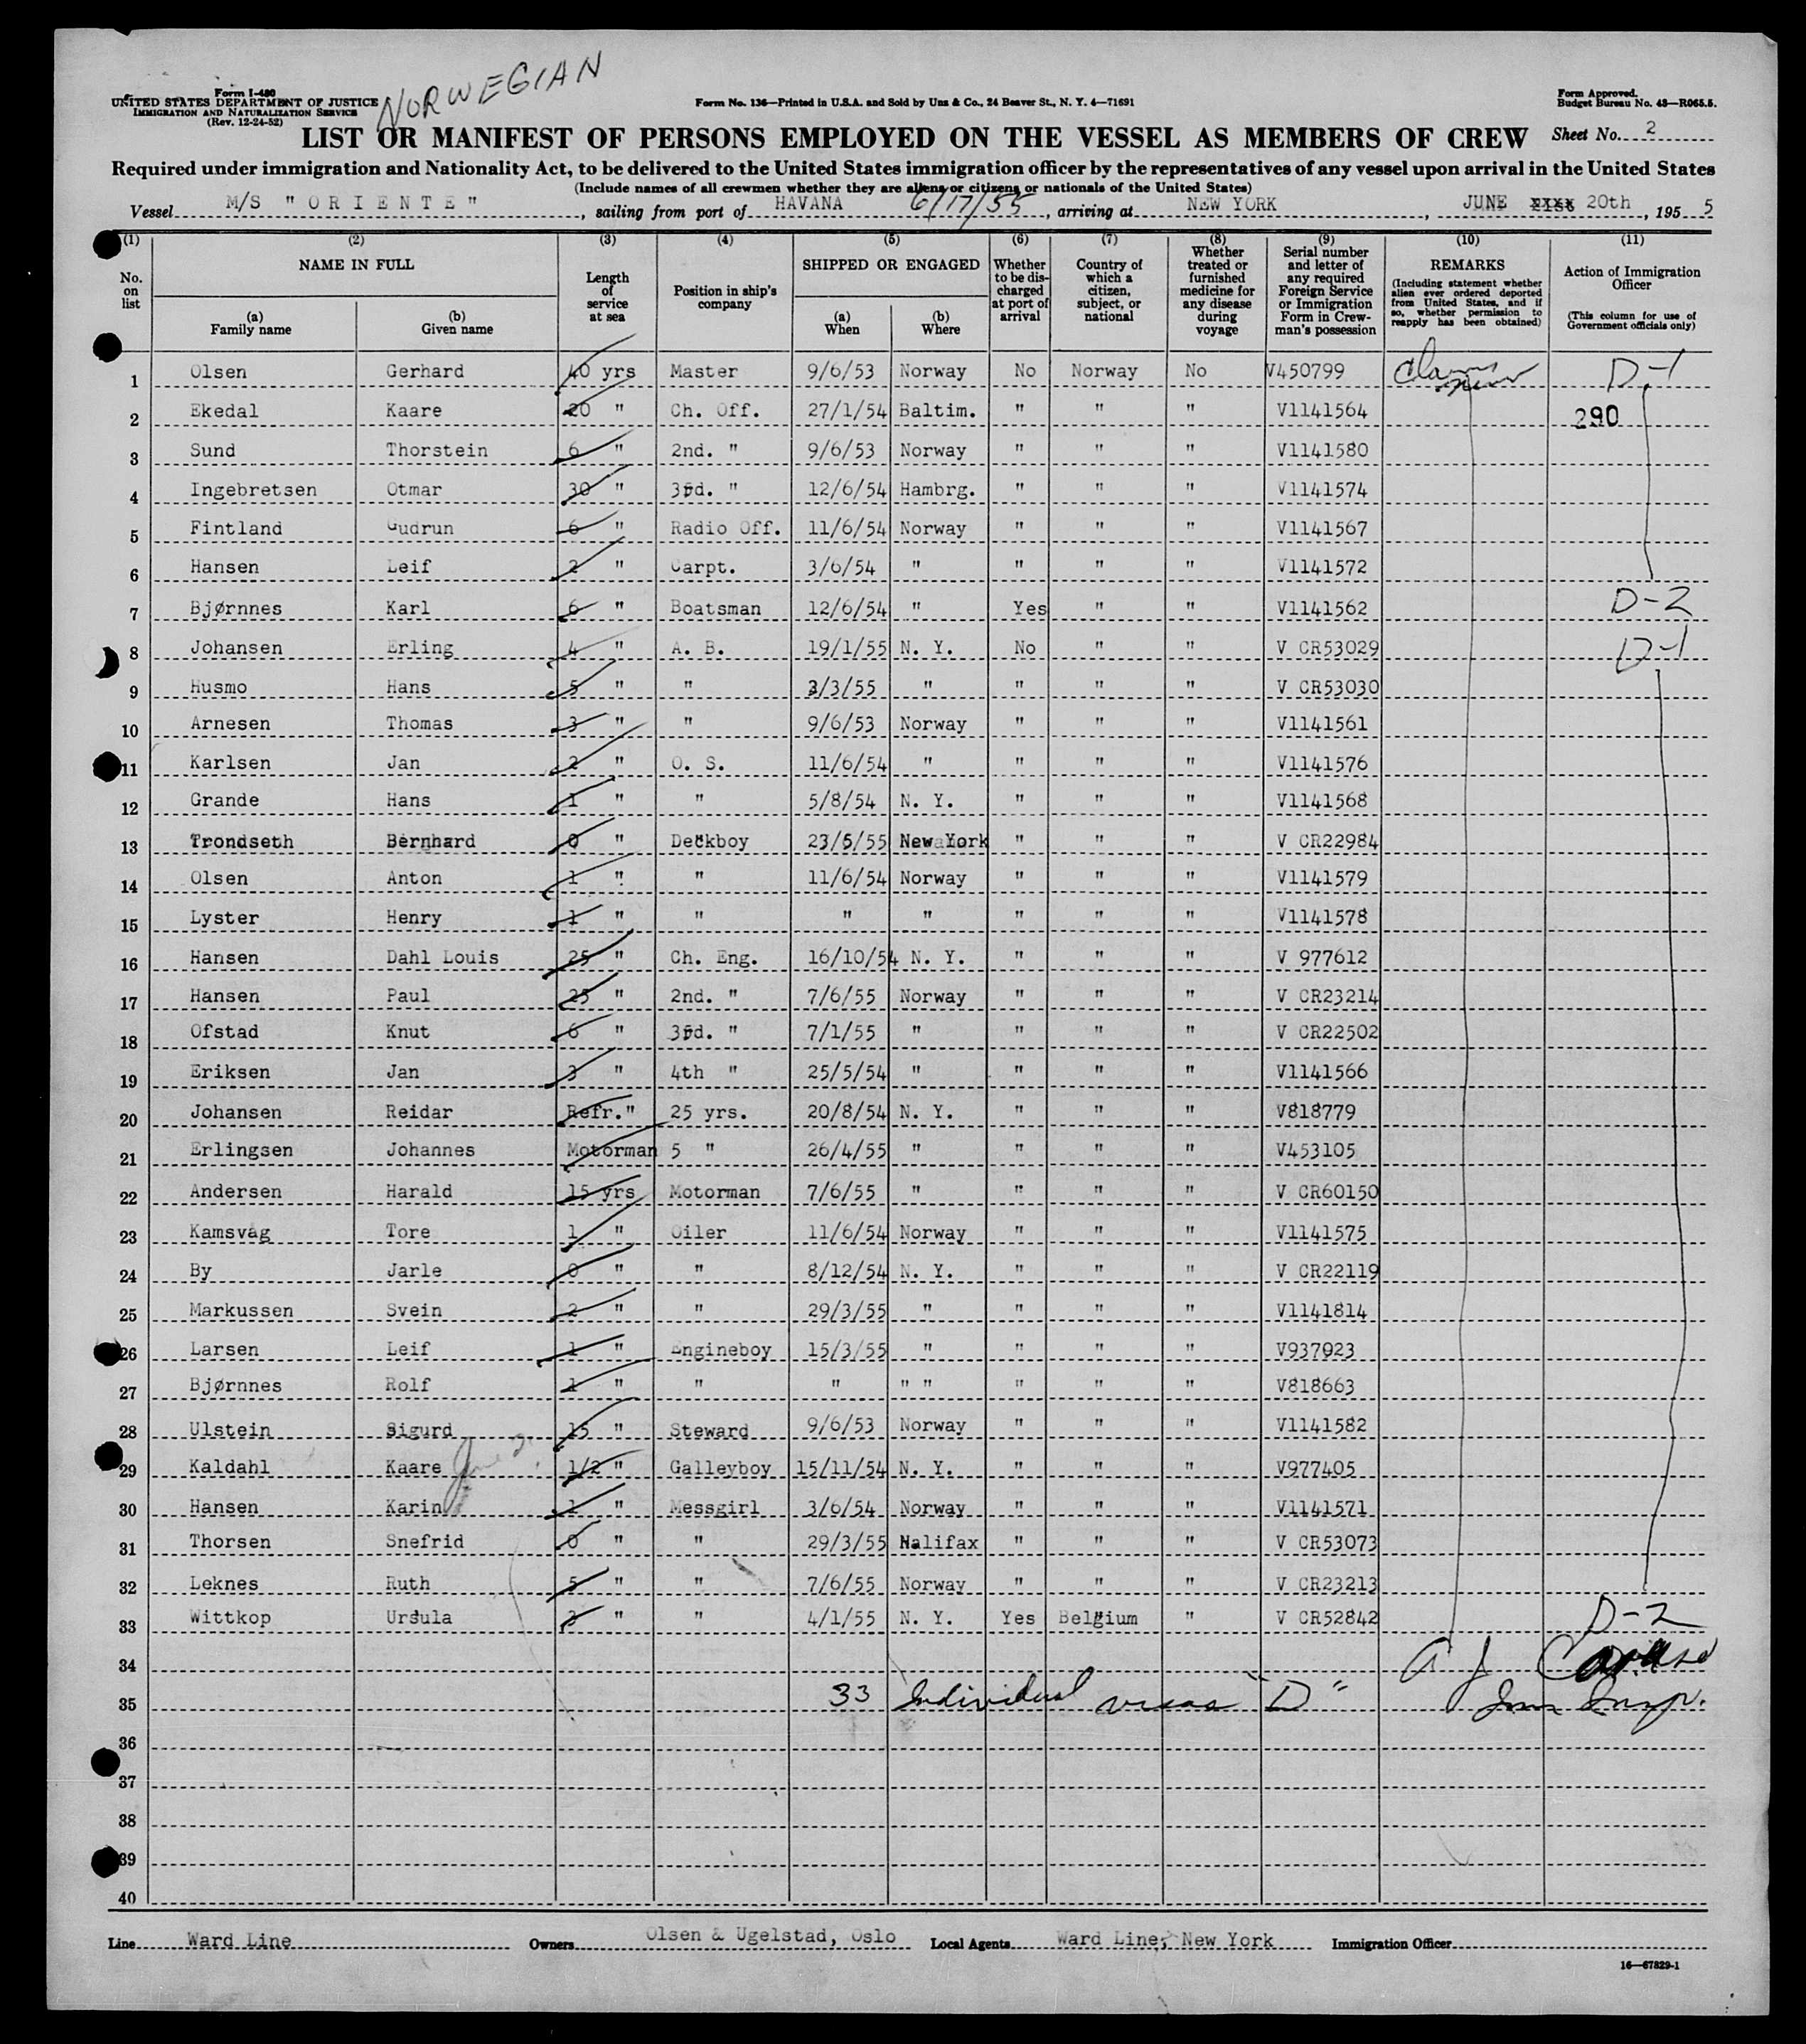 NORWEGIAN
Form I-480
UNITED STATES DEPARTMENT OF JUSTICE
IMMIGRATION AND NATURALIZATION SERVICE
(Rev. 12-24-52)
Form No. 136—Printed in U.S.A. and Sold by Unz & Co., 24 Beaver St., N. Y. 4—71691
Form Approved.
Budget Bureau No. 43—R065.5.
LIST OR MANIFEST OF PERSONS EMPLOYED ON THE VESSEL AS MEMBERS OF CREW
Sheet No. 2
Required under immigration and Nationality Act, to be delivered to the United States immigration officer by the representatives of any vessel upon arrival in the United States
(Include names of all crewmen whether they are aliens or citizens or nationals of the United States)
Vessel M/S "ORIENTE", sailing from port of HAVANA 6/17/55, arriving at NEW YORK, JUNE 20th, 1955
(1) (2) (3) (4) (5) (6) (7) (8) (9) (10) (11)
No. on list
NAME IN FULL
(a) Family name
(b) Given name
Length of service at sea
Position in ship's company
SHIPPED OR ENGAGED
(a) When
(b) Where
Whether to be discharged at port of arrival
Country of which a citizen, subject, or national
Whether treated or furnished medicine for any disease during voyage
Serial number and letter of any required Foreign Service or Immigration Form in Crewman's possession
REMARKS
(Including statement whether alien ever ordered deported from United States, and if so, whether permission to reapply has been obtained)
Action of Immigration Officer
(This column for use of Government officials only)
1 Olsen Gerhard 40 yrs Master 9/6/53 Norway No Norway No V450799 D-1
2 Ekedal Kaare 20 " Ch. Off. 27/1/54 Baltim. " " " V1141564 290
3 Sund Thorstein 6 " 2nd. " 9/6/53 Norway " " " V1141580
4 Ingebretsen Otmar 30 " 3rd. " 12/6/54 Hambrg. " " " V1141574
5 Fintland Gudrun 6 " Radio Off. 11/6/54 Norway " " " V1141567
6 Hansen Leif 2 " Carpt. 3/6/54 " " " " V1141572
7 Bjørnnes Karl 6 " Boatsman 12/6/54 " Yes " " V1141562 D-2
8 Johansen Erling 4 " A. B. 19/1/55 N. Y. No " " V CR53029 D-1
9 Husmo Hans 5 " " 3/3/55 " " " " V CR53030
10 Arnesen Thomas 3 " " 9/6/53 Norway " " " V1141561
11 Karlsen Jan 2 " O. S. 11/6/54 " " " " V1141576
12 Grande Hans 1 " " 5/8/54 N. Y. " " " V1141568
13 Trondseth Bernhard 0 " Deckboy 23/5/55 New York " " " V CR22984
14 Olsen Anton 1 " " 11/6/54 Norway " " " V1141579
15 Lyster Henry 1 " " " " " " " V1141578
16 Hansen Dahl Louis 25 " Ch. Eng. 16/10/54 N. Y. " " " V 977612
17 Hansen Paul 25 " 2nd. " 7/6/55 Norway " " " V CR23214
18 Ofstad Knut 6 " 3rd. " 7/1/55 " " " " V CR22502
19 Eriksen Jan 3 " 4th " 25/5/54 " " " " V1141566
20 Johansen Reidar Refr." 25 yrs. 20/8/54 N. Y. " " " V818779
21 Erlingsen Johannes Motorman 5 " 26/4/55 " " " " V453105
22 Andersen Harald 15 yrs Motorman 7/6/55 " " " " V CR60150
23 Kamsvåg Tore 1 " Oiler 11/6/54 Norway " " " V1141575
24 By Jarle 0 " " 8/12/54 N. Y. " " " V CR22119
25 Markussen Svein 2 " " 29/3/55 " " " " V1141814
26 Larsen Leif 1 " Engineboy 15/3/55 " " " " V937923
27 Bjørnnes Rolf 1 " " " " " " " " V818663
28 Ulstein Sigurd 15 " Steward 9/6/53 Norway " " " V1141582
29 Kaldahl Kaare 1/2 " Galleyboy 15/11/54 N. Y. " " " V977405
30 Hansen Karin 1 " Messgirl 3/6/54 Norway " " " V1141571
31 Thorsen Snefrid 0 " " 29/3/55 Halifax " " " V CR53073
32 Leknes Ruth 5 " " 7/6/55 Norway " " " V CR23213
33 Wittkop Ursula " " 4/1/55 N. Y. Yes Belgium " V CR52842 D-2
34 A J Caruso
35 33 Individual visas "D" Imm Insp.
36
37
38
39
40
Line Ward Line Owners Olsen & Ugelstad, Oslo Local Agents Ward Line, New York Immigration Officer
16—67829-1